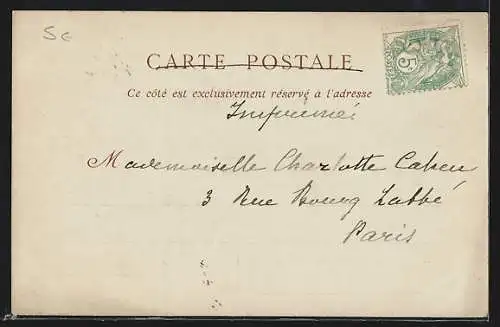 5c
CARTE POSTALE
5
Ce côté est exclusivement réservé à l'adresse
Imprimé
Mademoiselle Charlotte Cahen
3 Rue Bourg Labbé
Paris